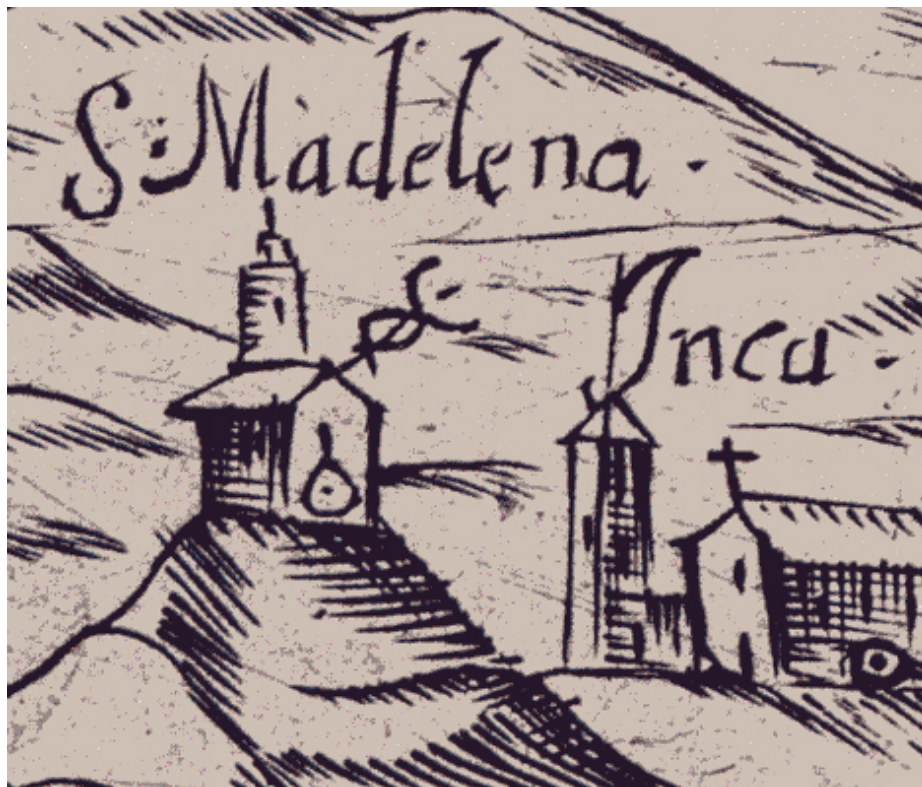 S. Madelena.
Inca.